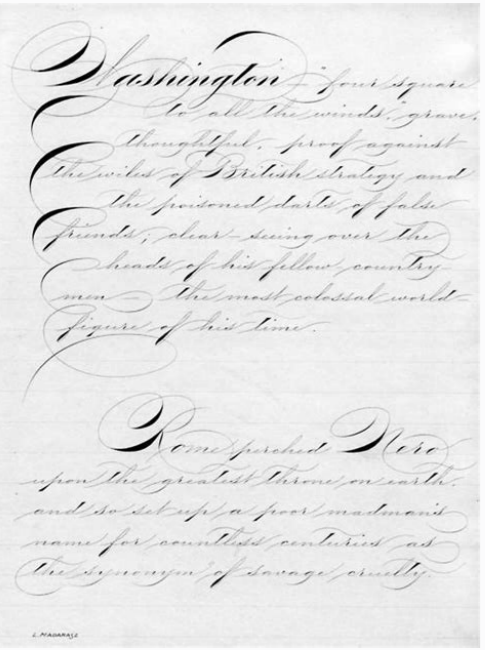 Washington - "four square
to all the winds," grave,
thoughtful, proof against
the wiles of British strategy and
the poisoned darts of false
friends; clear-seeing over the
heads of his fellow country-
men - the most colossal world-
figure of his time.
Rome perched Nero
upon the greatest throne on earth,
and so set up a poor madman's
name for countless centuries as
the synonym of savage cruelty.
L. MADARASZ